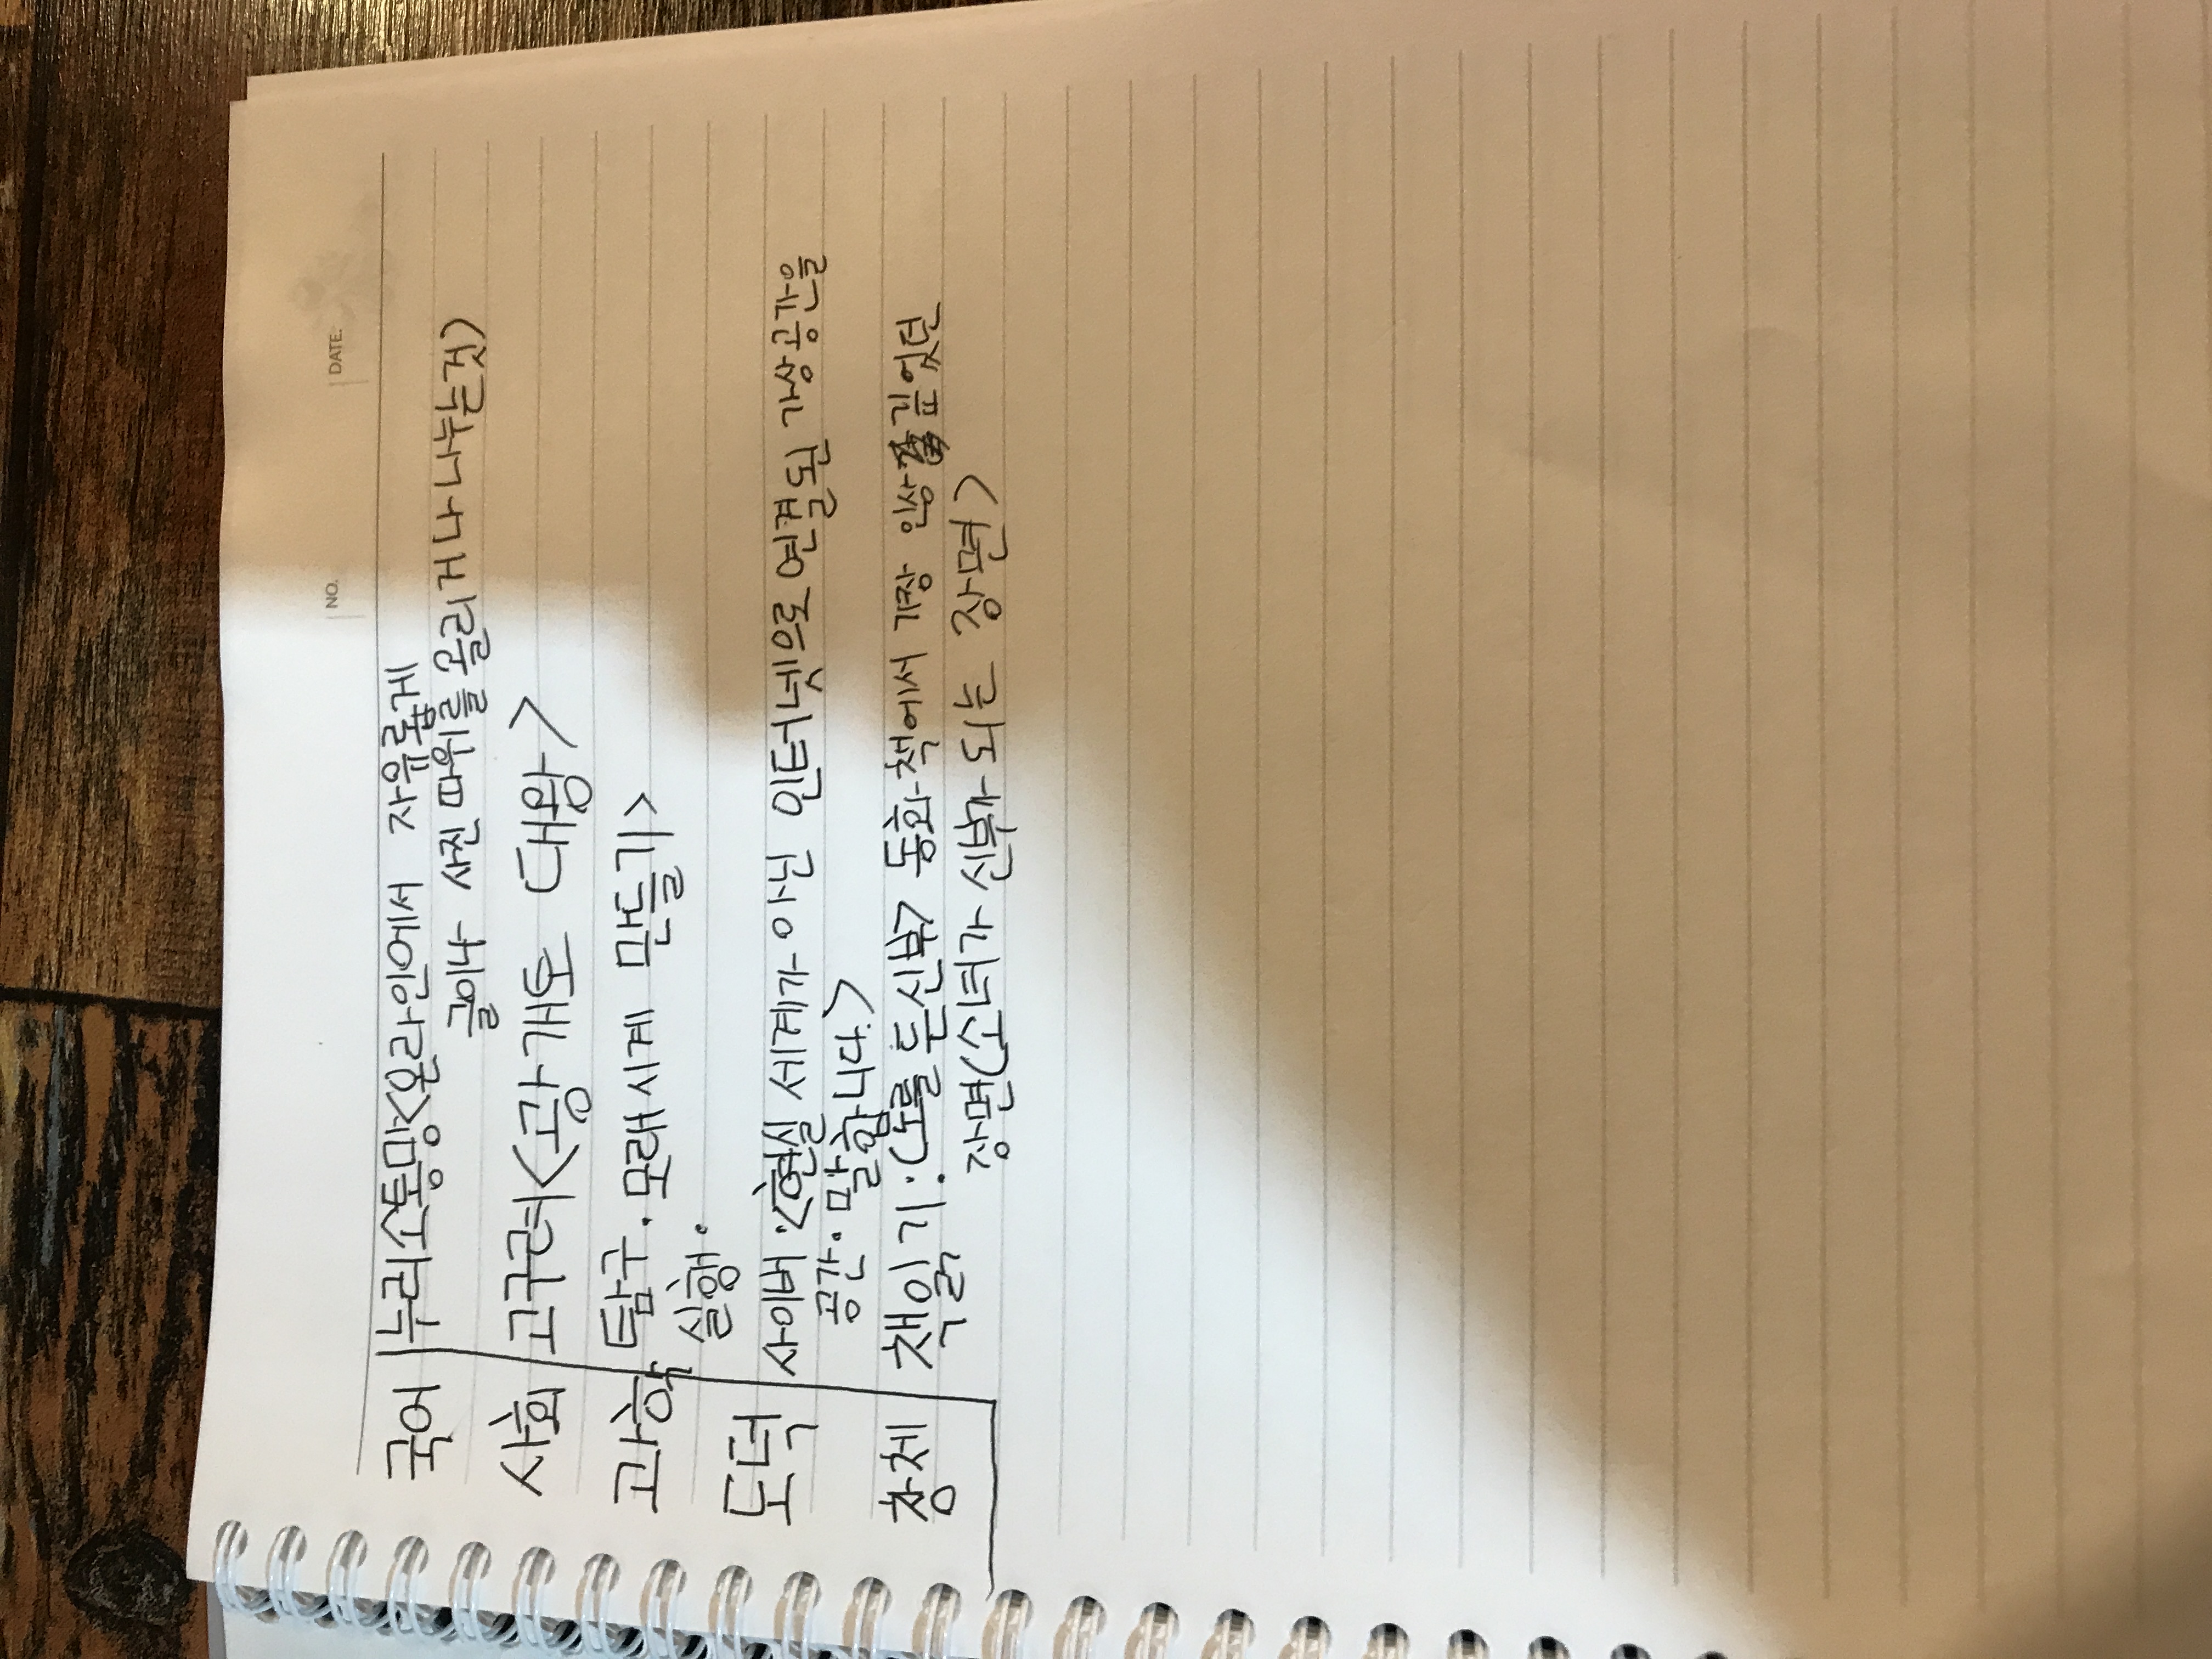 NO.
DATE.
국어 누리소통망<온라인에서 자유롭게
글이나 사진 따위를 올리거나 나누는것)
사회 고구려<광개토 대왕>
과학 탐구. 모래시계 만들기>
실행.
도덕 사이버.<현실 세계가 아닌 인터넷으로 연결된 가상공간을
공간. 말합니다.>
창체 책읽기:(노를 든신부> 동화책에서 가장 인상 깊었던
장면(소녀가 신부가 되는 장면>